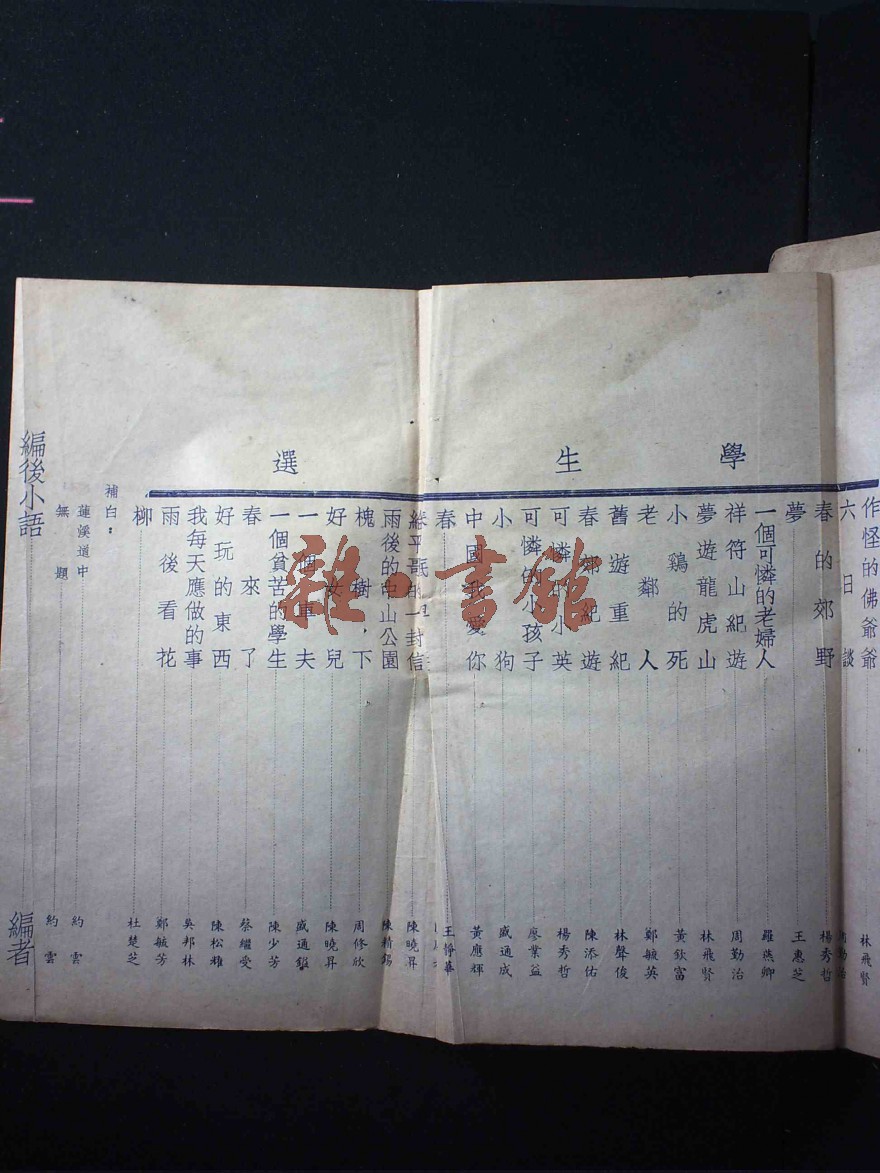 學生選
作怪的佛爺爺 林飛賢
六日談 周勤治
春的郊野 楊秀哲
夢 王惠芝
一個可憐的老婦人 羅燕卿
祥符山紀遊 周勤治
夢遊龍虎山 林飛賢
小鷄的死 黃欽富
老鄰人 鄭毓英
舊遊重紀 林聲俊
春郊紀遊 陳添佑
可憐的小英 楊秀哲
可憐的小孩子 廖業益
小狗 盛通成
中國我愛你 黃應輝
春 王靜華
平哥的一封信 陳曉昇
雨後的中山公園 陳精錫
槐樹下 周修欣
好女兒 陳曉昇
一個車夫 盛通鎰
一個貧苦的學生 陳少芳
春來了 蔡繼受
好玩的東西 陳松雅
我每天應做的事 吳邦林
雨後看花 鄭毓芳
柳 杜楚芝
補白：
蓮溪道中 約雲
無題 約雲
編後小語 編者
雜·書館